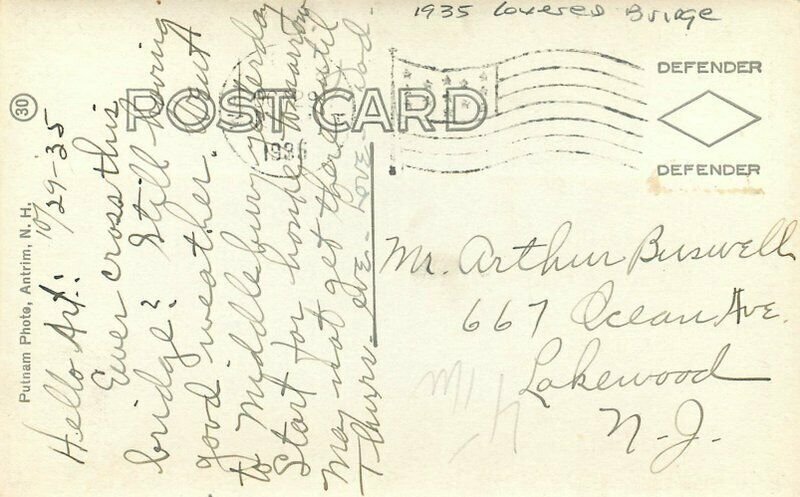 1935 Covered Bridge
POST CARD
DEFENDER
DEFENDER
30
Putnam Photo, Antrim, N. H.
10/29-35
Hello Art:
Ever cross this
bridge? Still having
good weather. Went
to Middlebury yesterday
Start for home tomorrow
May not get there until
Thurs. eve. Love
Mr. Arthur Buswell
667 Ocean Ave.
Lakewood
N.J.